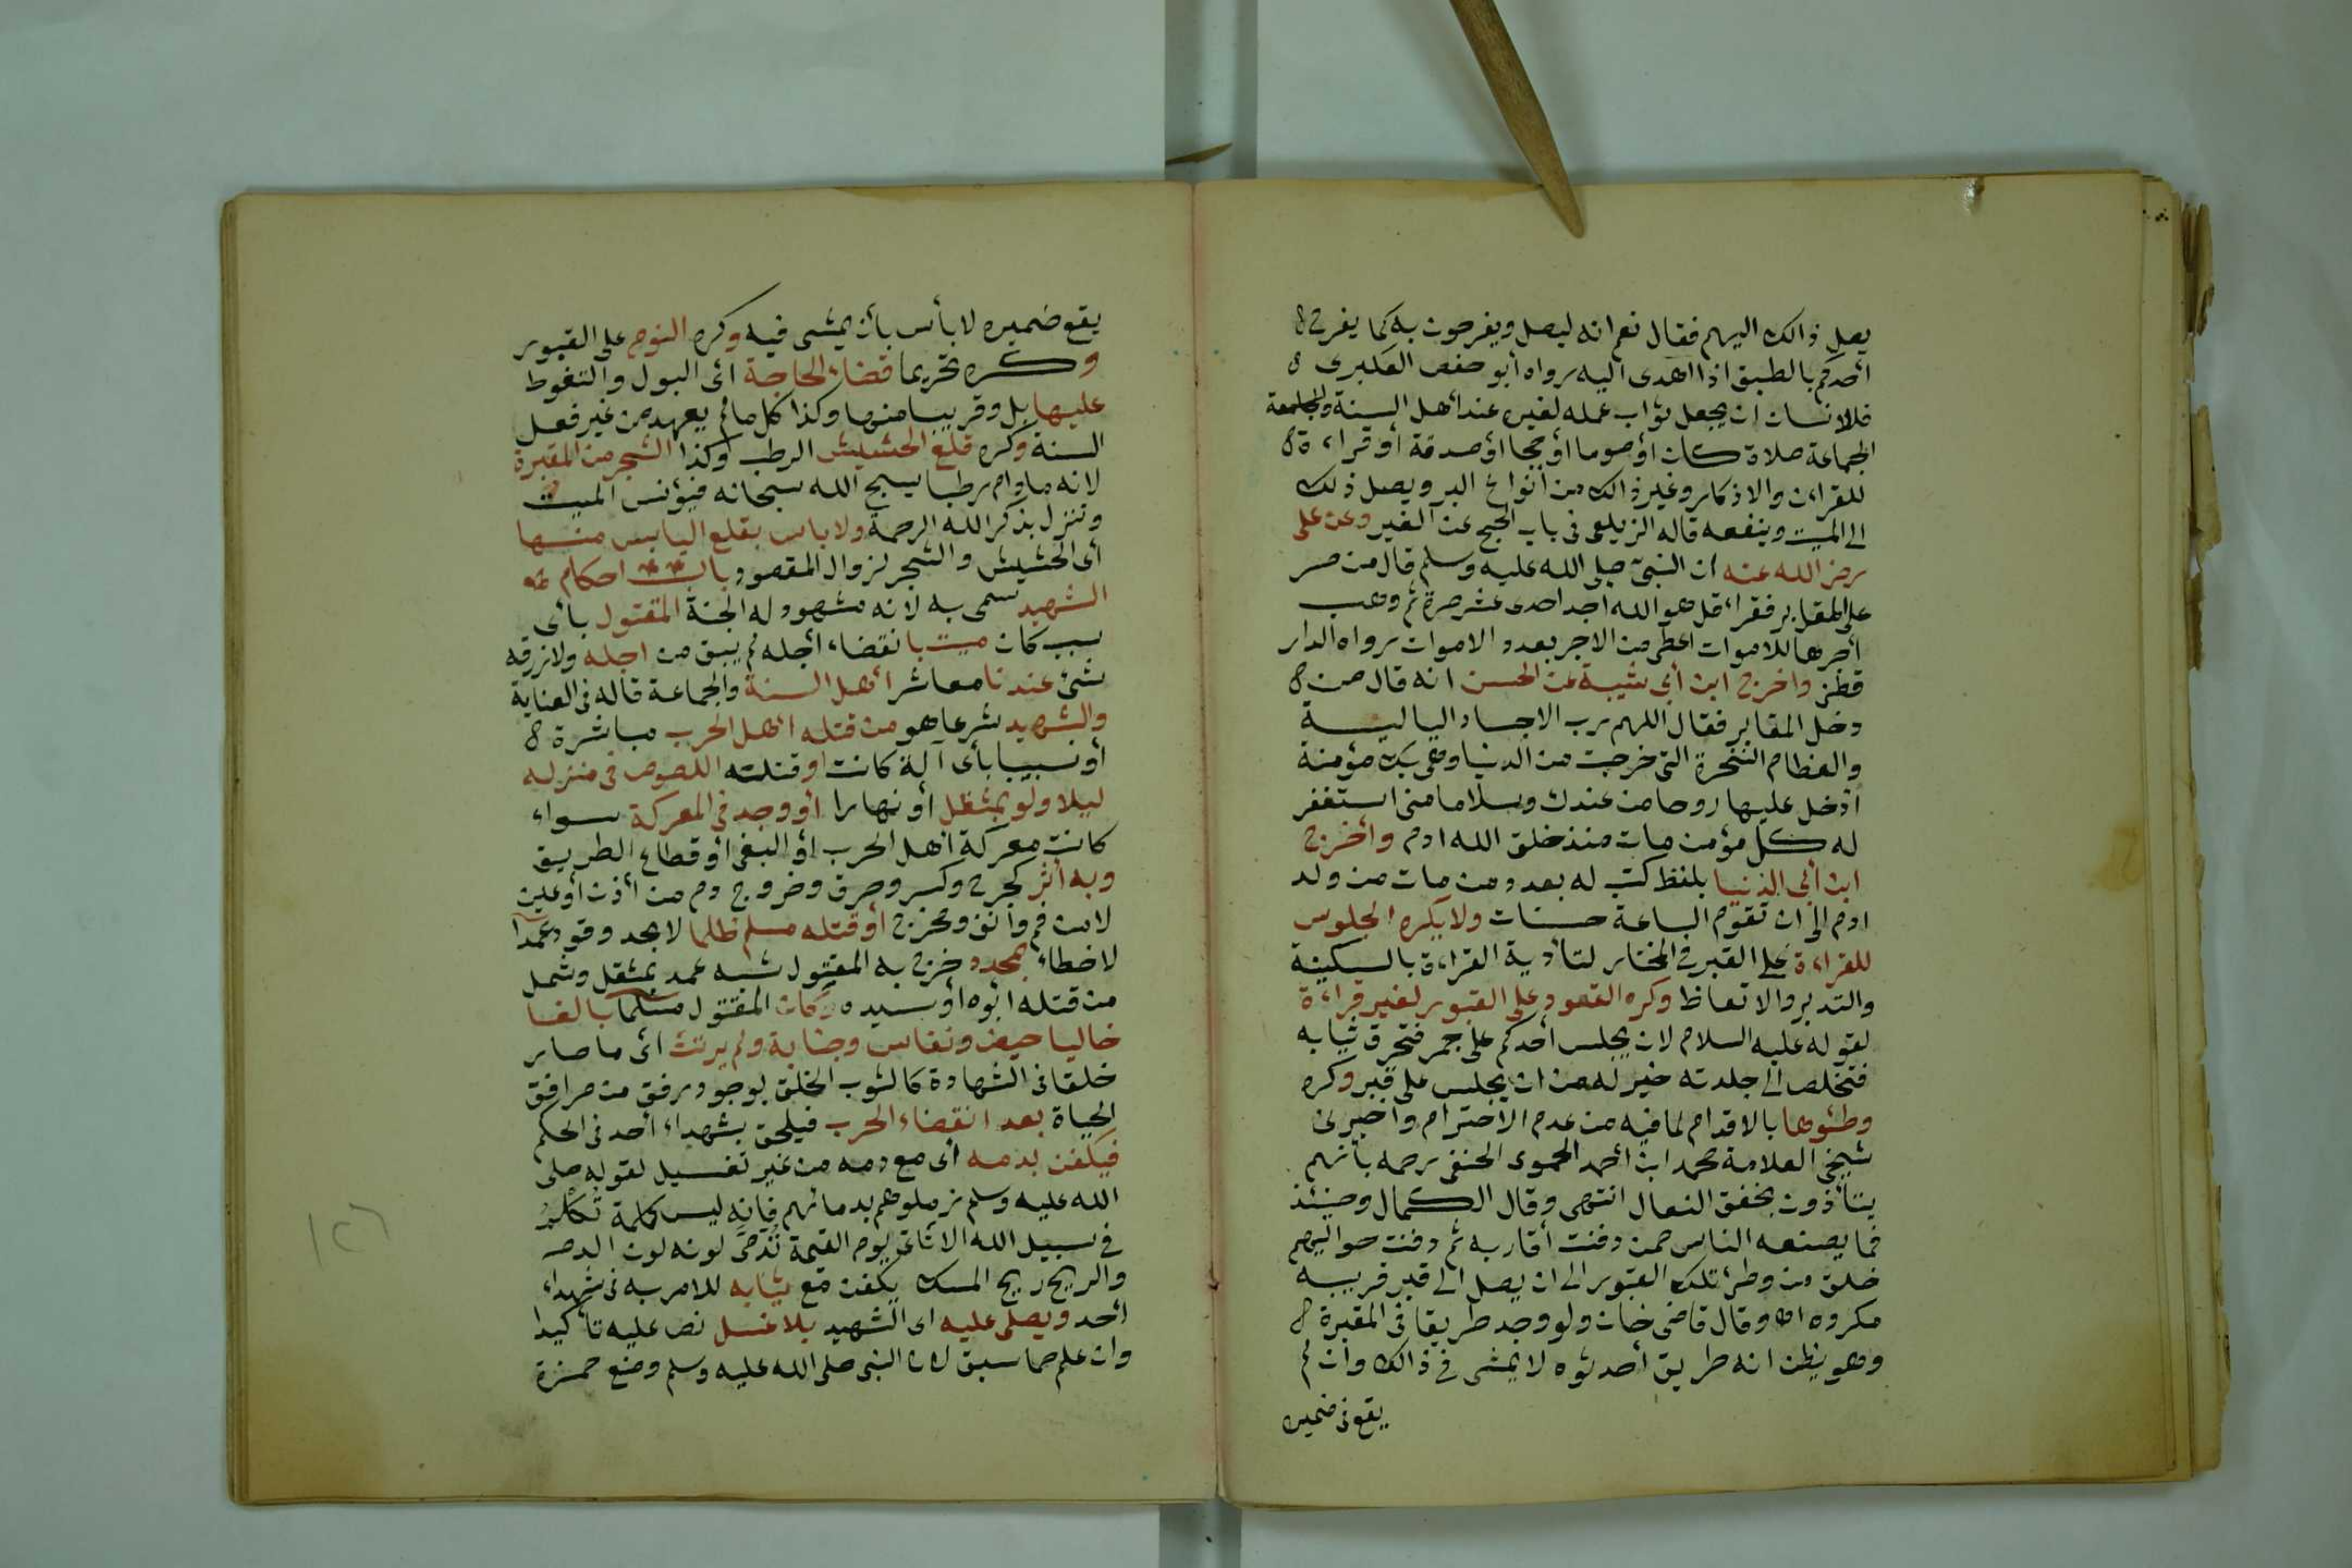 يصل ذالك اليهم فقال نعم انه ليصل ويفرحون به كما يفرح
أحدكم بالطبق اذا اهدى اليه رواه أبو حفص العكبرى
فللانسان ان يجعل ثواب عمله لغيره عند أهل السنة والجامعة
الجماعة صلاة كان أو صوما أو حجا أو صدقة أو قراءة
للقراءن والاذكار وغير ذالك من أنواع البر ويصل ذلك
الى الميت وينفعه قاله الزيلعى فى باب الحج عن الغير وعن على
رضى الله عنه ان النبىّ صلى الله عليه وسلم قال من مر
على المقابر فقراء قل هو الله احد احدى عشر مرة ثم وهب
أجرها للاموات اعطى من الاجر بعدد الاموات رواه الدار
قطنى واخرج ابن أبى شيبة عن الحسن انه قال من
دخل المقابر فقال اللهم رب الاجساد البالية
والعظام النخرة التى خرجت من الدنيا وهى بك مؤمنة
أدخل عليها روحا من عندك وسلاما منى استغفر
له كل مؤمن مات منذ خلق الله ادم وأخرج
ابن أبى الدنيا بلفظ كتب له بعدد من مات من ولد
ادم الى ان تقوم الساعة حسنات ولا يكره الجلوس
للقراءة على القبر فى المختار لتأدية القراءة بالسكينة
والتدبر والاتعاظ وكره القعود على القبور لغير قراءة
لقوله عليه السلام لان يجلس أحدكم على جمر فتحرق ثيابه
فتخلص الى جلدته خير له من ان يجلس على قبر وكره
وطئوها بالاقدام لما فيه من عدم الاحترام واخبرنى
شيخى العلامة محمد ابن أحمد الحموى الحنفى رحمه بأنهم
يتأذون بخفق النعال انتهى وقال الكمال وحينئذ
فما يصنعه الناس ممن دفنت أقاربه ثم دفنت حواليهم
خلق من وطئ تلك القبور الى ان يصل الى قبر قريبه
مكروه اه وقال قاضى خان ولو وجد طريقا فى المقبرة
وهو يظن انه طريق أحدثوه لا يمشى فى ذالك وان لم
يقع فى ضميره
يقع ضميره لا بأس بأن يمشى فيه وكره النوم على القبور
وكره تحريما قضاء الحاجة أى البول والتغوط
عليها بل وقريبا منها وكذا كل ما لم يعهد من غير فعل
السنة وكره قلع الحشيش الرطب وكذا الشجر من المقبرة
لانه مادام رطبا يسبح الله سبحانه فيؤنس الميت
وتنزل بذكر الله الرحمة ولا باس بقلع اليابس منها
أى الحشيش والشجر لزوال المقصود باب احكام
الشهيد سمى به لانه مشهود له الجنة المقتول بأى
سبب كان ميت بانقضاء أجله لم يبق من اجله ولا رزقه
شئ عندنا معاشر أهل السنة والجماعة قاله فى العناية
والشهيد شرعا هو من قتله أهل الحرب مباشرة
أو نسبيبا بأى آلة كانت او قتلته اللصوص فى منزله
ليلا ولو بمثقل أو نهارا أو وجد فى المعركة سواء
كانت معركة أهل الحرب أو البغى أو قطاع الطريق
وبه أثر كجرح وكسر وحرق وخروج دم من أذن أو عين
لا من فم وأنف ومخرج أو قتله مسلم ظلما لا بحد وقود عمدا
لا خطاء بمحدد خرج به المقتول شبه عمد بمثقل وشمل
من قتله ابوه أو سيده وكان المقتول مسلما بالغا
خاليا حيض ونفاس وجنابة ولم يرتث أى ما صار
خلقا فى الشهادة كالثوب الخلق لوجود رفق من مرافق
الحياة بعد انقضاء الحرب فيلحق بشهداء أحد فى الحكم
فيكفن بدمه أى مع دمه من غير تغسيل لقوله صلى
الله عليه وسلم زملوهم بدمائهم فإنه ليس كلمة تُكلم
فى سبيل الله الا تاتى يوم القيمة تُدمى لونه لون الدم
والريح ريح المسك يكفن مع ثيابه للامر به فى شهداء
أحد ويصلى عليه اى الشهيد بلا غسل نص عليه تأكيدا
وان علم مما سبق لان النبى صلى الله عليه وسلم وضع حمزة
١٢٦